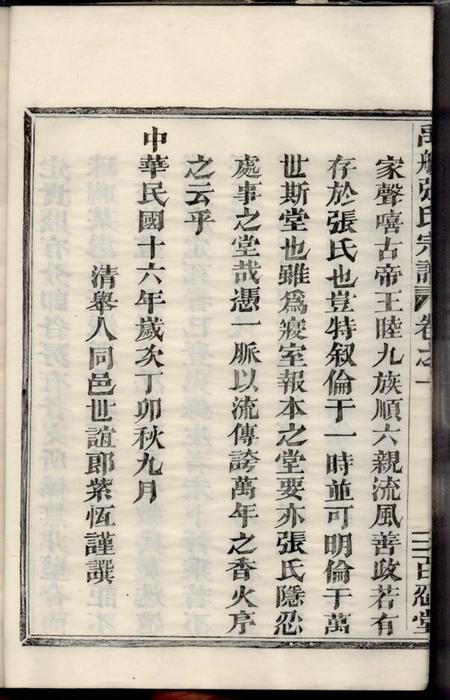 張氏宗譜 卷之一 百忍堂
家聲嘻古帝王睦九族順六親流風善政若有
存於張氏也豈特叙倫于一時並可明倫于萬
世斯堂也雖爲寢室報本之堂要亦張氏隱忍
處事之堂哉憑一脈以流傳誇萬年之香火序
之云乎
中華民國十六年歲次丁卯秋九月
清舉人同邑世誼郎紫恆謹撰